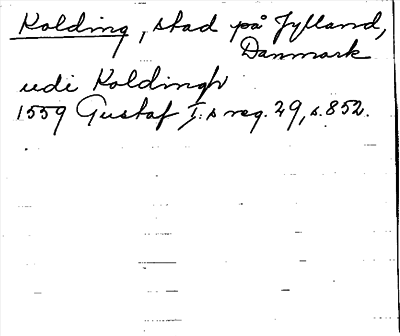 Kolding, stad på Jylland,
Danmark
udi Koldingh
1559 Gustaf I:s reg. 29, s. 852.